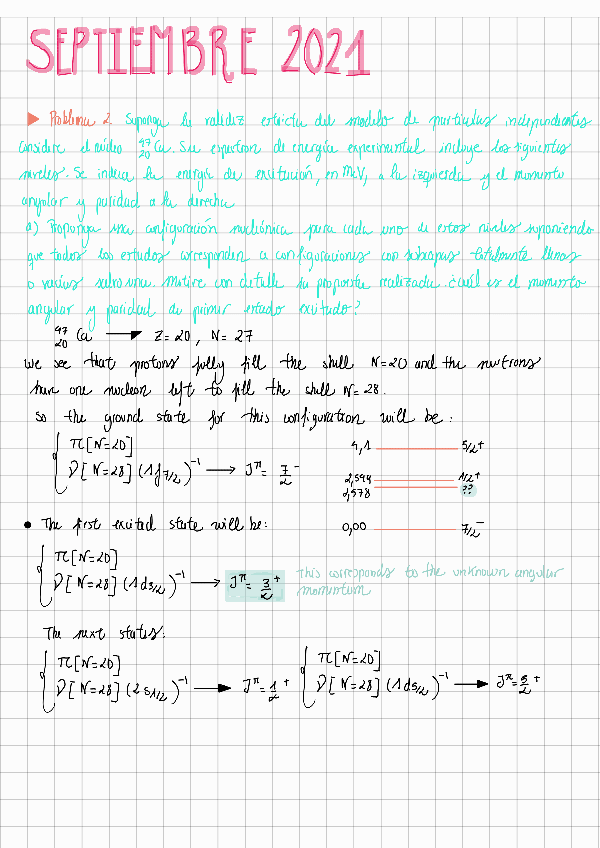 SEPTIEMBRE 2021
▶ Problema 2. Suponga la validez estricta del modelo de partículas independientes
considere el núcleo ⁴⁷₂₀Ca. Su espectro de energía experimental incluye los siguientes
niveles. Se indica la energía de excitación, en MeV, a la izquierda y el momento
angular y paridad a la derecha
a) Proponga una configuración nucleónica para cada uno de estos niveles suponiendo
que todos los estados corresponden a configuraciones con subcapas totalmente llenas
o vacías salvo una. Motive con detalle la propuesta realizada. ¿cuál es el momento
angular y paridad du primer estado excitado?
⁴⁷₂₀Ca → Z = 20, N = 27
we see that protons fully fill the shell N=20 and the neutrons
have one nucleon left to fill the shell N=28.
so the ground state for this configuration will be:
π[N=20]
ν[N=28] (1f₇/₂)⁻¹ → Jᵖ = 7/2⁻
4,1 5/2⁺
2,599 1/2⁺
2,578 ??
0,00 7/2⁻
• The first excited state will be:
π[N=20]
ν[N=28] (1d₃/₂)⁻¹ → Jᵖ = 3/2⁺
This corresponds to the unknown angular
momentum
The next states:
π[N=20]
ν[N=28] (2s₁/₂)⁻¹ → Jᵖ = 1/2⁺
π[N=20]
ν[N=28] (1d₅/₂)⁻¹ → Jᵖ = 5/2⁺